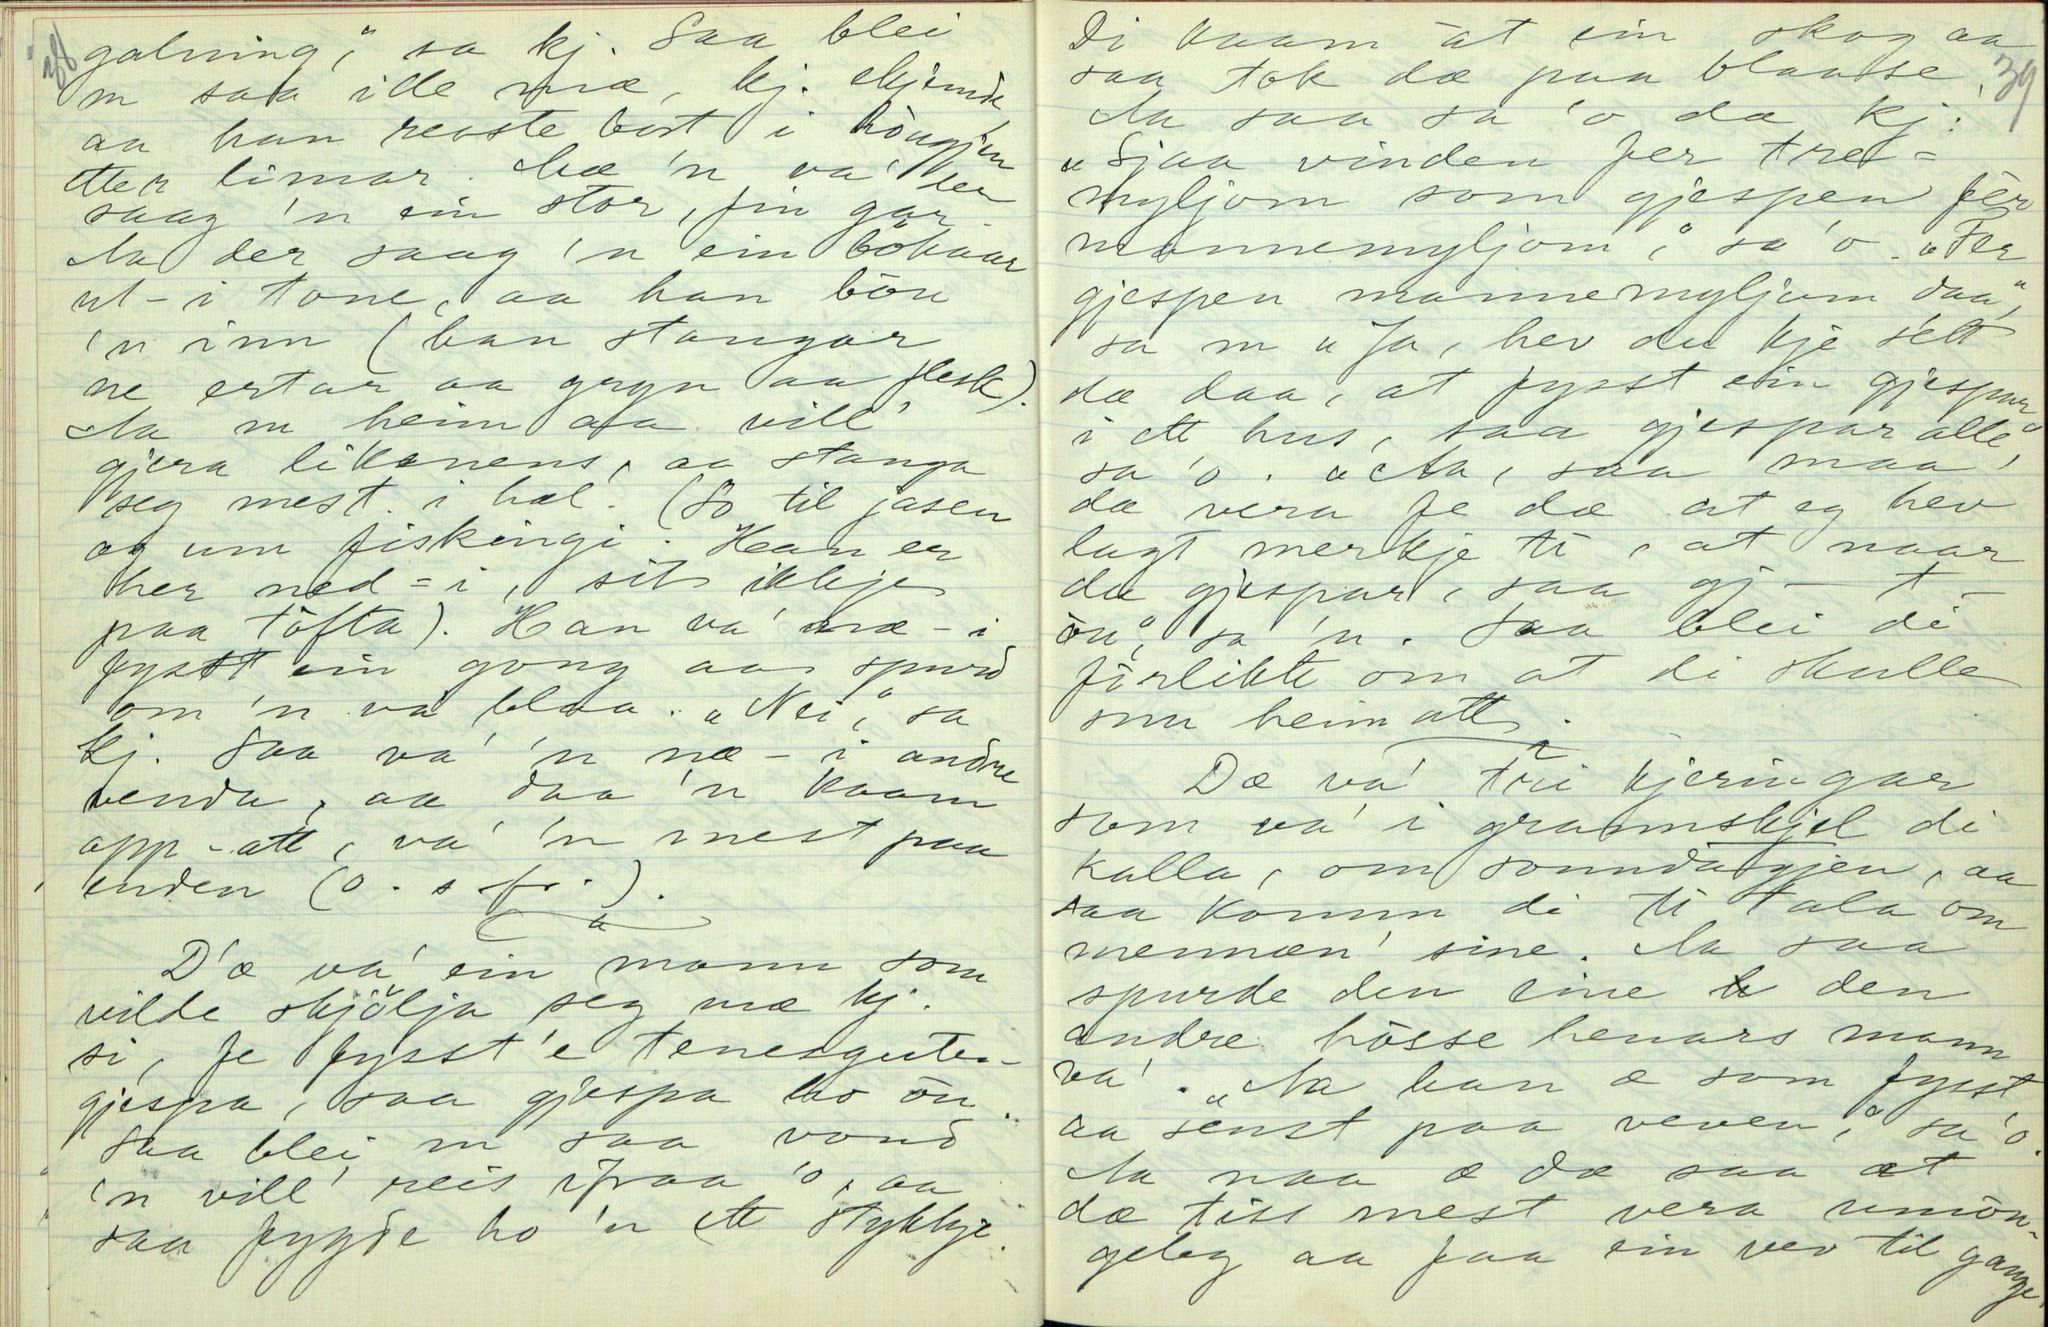 38
galning," sa kj. Saa blei
m saa ille mæ, kj. skjemde
aa han reiste bort i
etter limar. Mæ 'n va' der
saag 'n ein stor, fin gar.
Aa der saag 'n ein bökaar
ut-i tone, aa han bön
'n inn (han stangar
ne ertar aa gryn aa flesk).
Aa m heim aa vill'
gjera likenens, aa stanga
seg mest i hæl. (So til jasen
og um fiskingi. Han er
her ned-i, sit ikkje
paa töfta). Han va' næ-i
fysst ein gong aa spurd
om 'n va blaa. „Nei," sa
kj. Saa va' 'n næ-i andre
venda, aa daa 'n kaam
opp-att, va' 'n mest paa
enden (o. s. fr.).
D'æ va' ein mann som
vilde skjölja seg mæ kj.
si, fe fysst'e tenesguten
gjespa, saa gjespa ho òu.
Saa blei m saa vond
'n vill' reis ifraa 'o, aa
saa fygde ho 'n ett stykkje.
39
Di kaam at ein skog aa
saa tok dæ paa blaase.
Aa saa sa 'o da kj:
„Sjaa vinden fer tre-
myljom som gjespen fer
mannemyljom," sa 'o. „Fer
gjespen mannemyljom daa",
sa m „Ja, hev du kje sett
dæ daa, at fysst ein gjespar
i ett hus, saa gjespar alle",
sa 'o. „Aa, saa maa
dæ vera fe dæ at eg hev
lagt merkje ti, at naar
du gjespar, saa gj - t -
òu," sa 'n. Saa blei di
förlikte om at di skulle
snu heimatt.
Dæ va' tri kjeringar
som va' i grannskjel di
kalla, om sonndagjen, aa
saa komm di ti tala om
mennæn' sine. Aa saa
spurde den eine den
andre hösse henars mann
va'. „Aa han æ som fysst
aa senst paa veven," sa 'o.
Aa naa æ dæ saa at
dæ tiss mest vera umön-
geleg aa faa ein vev til gange,